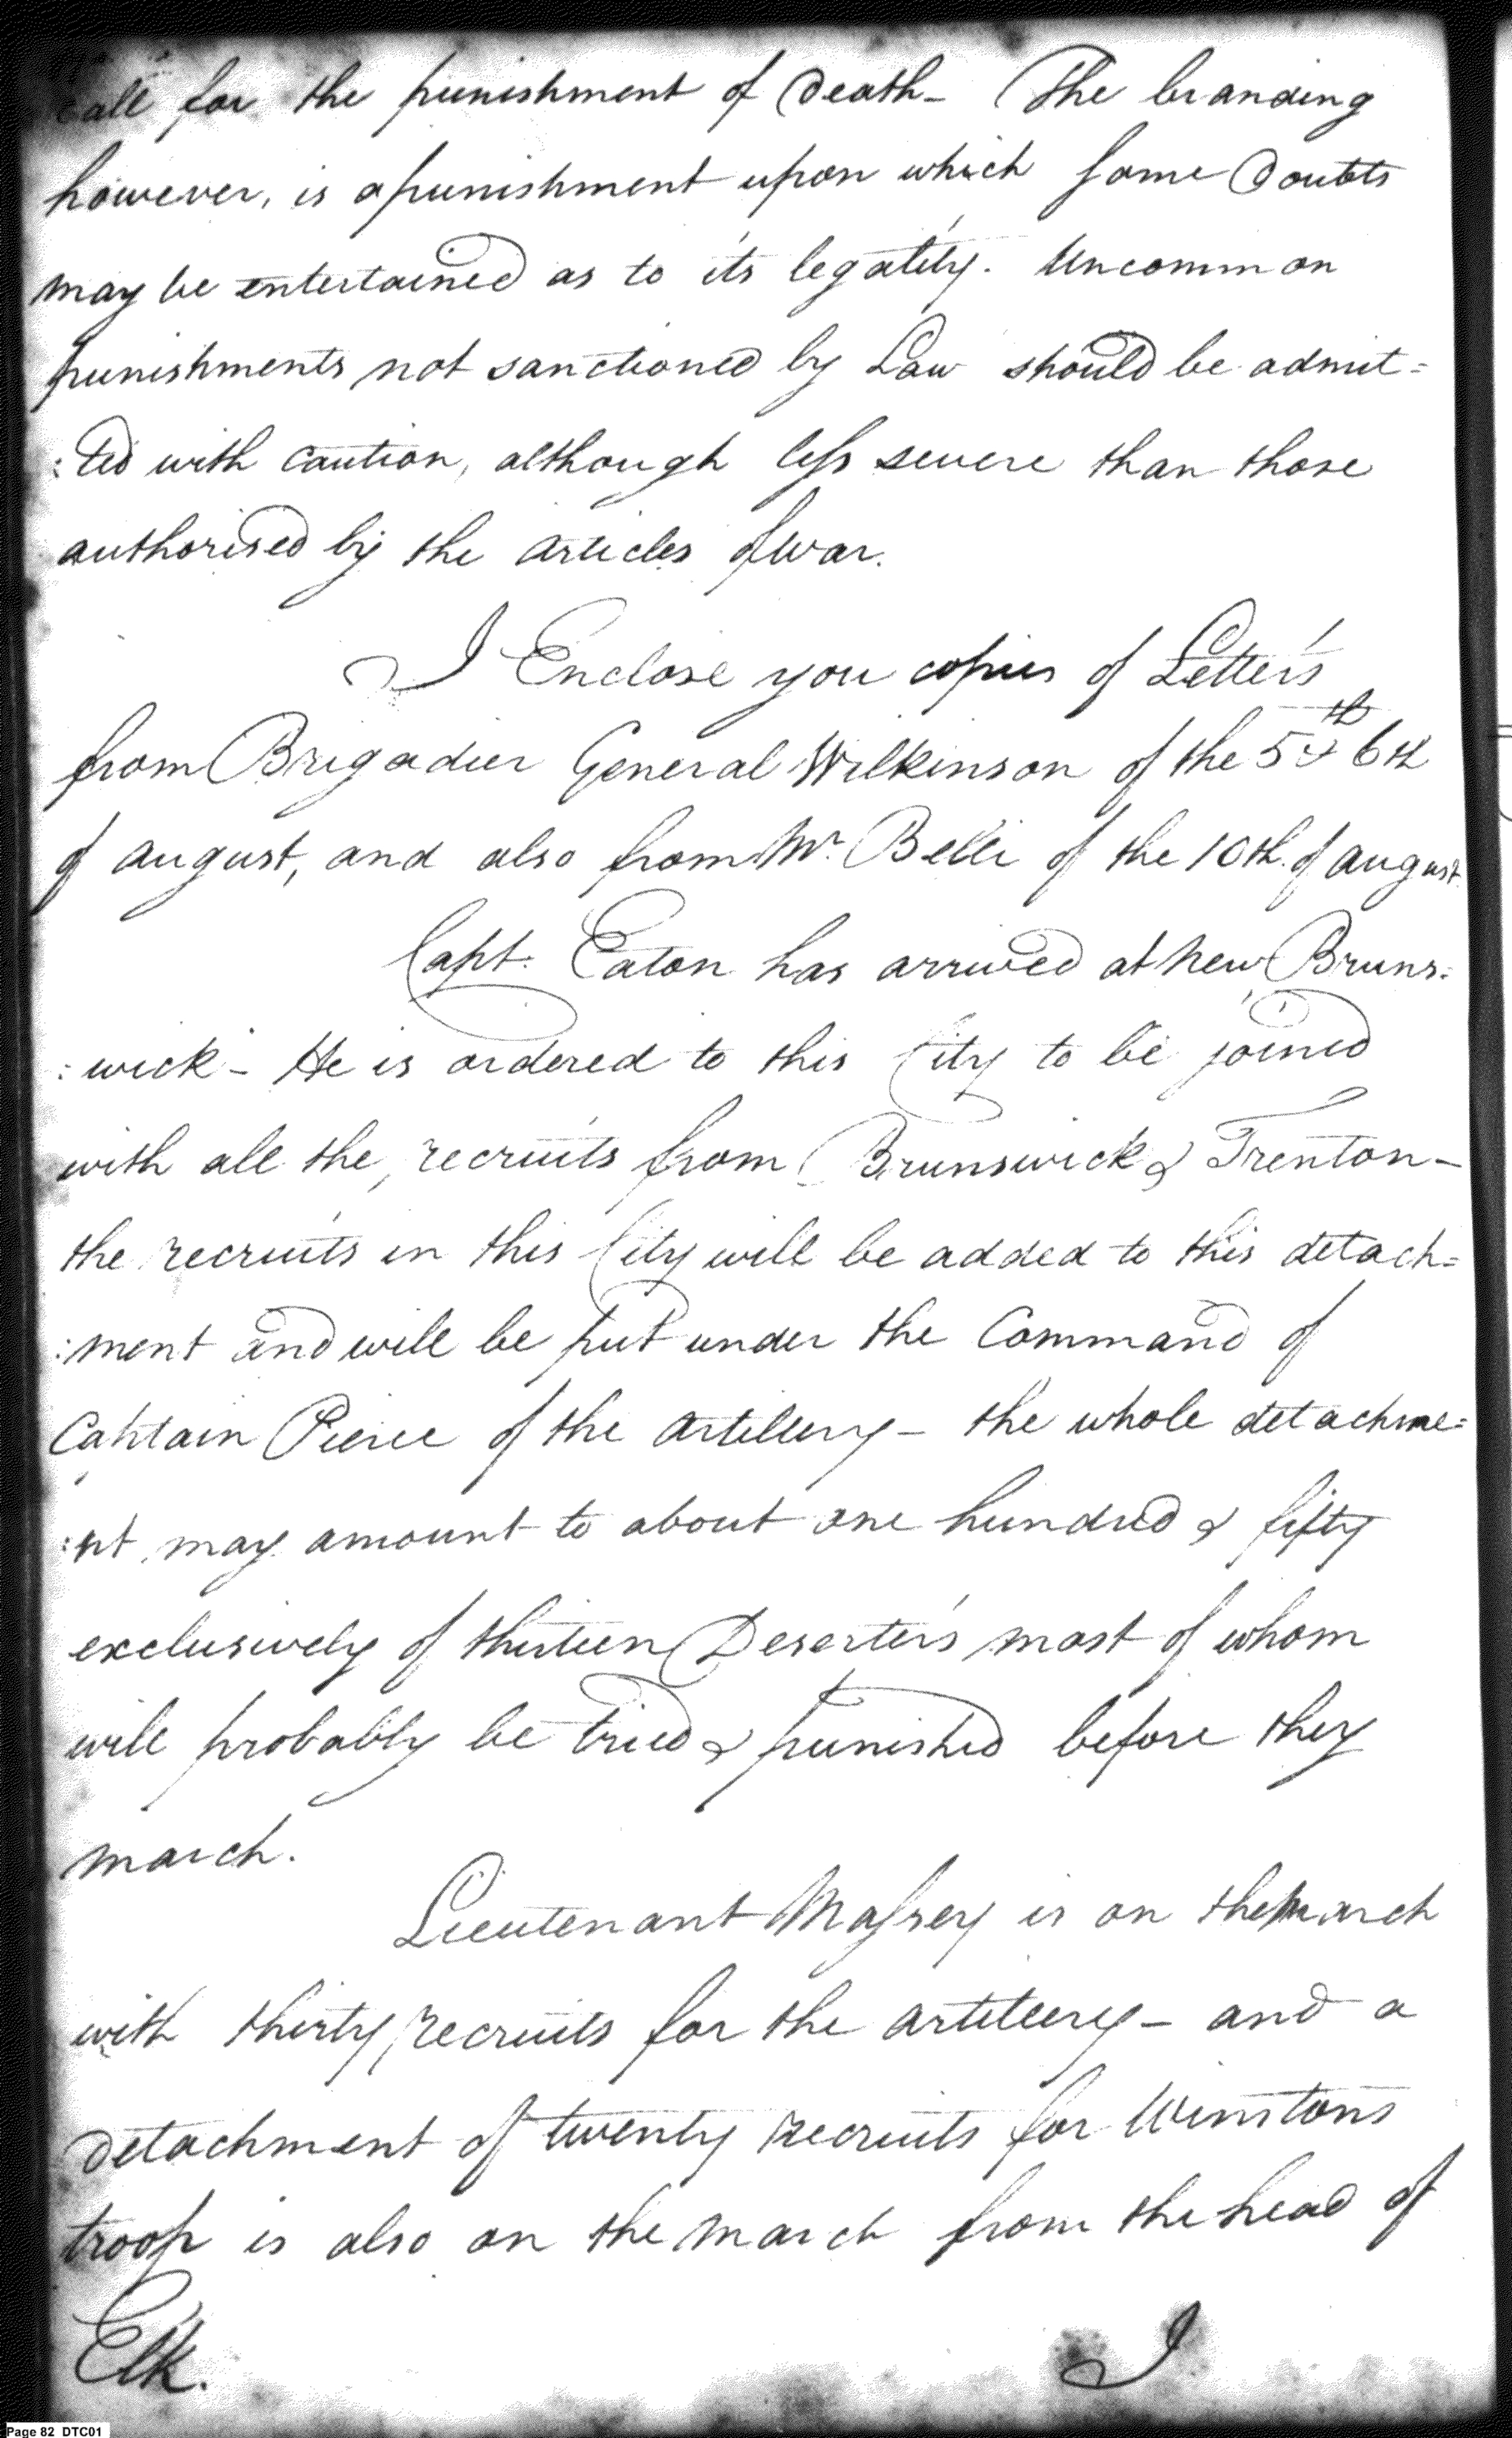 call for the punishment of Death- The branding
however, is a punishment upon which some Doubts
may be entertained as to its legality. Uncommon
punishments not sanctioned by Law should be admit=
:ted with caution, although less severe than those
authorised by the articles of war.
I Enclose you copies of Letters
from Brigadier General Wilkinson of the 5th & 6th
of august, and also from Mr. Belli of the 10th. of august.
Capt. Eaton has arrived at New Bruns:
:wick - He is ordered to this City to be joined
with all the recruits from Brunswick & Trenton-
the recruits in this City will be added to this detach=
:ment and will be put under the Command of
Captain Pierce of the artillery - the whole detachme=
:nt may amount to about one hundred & fifty
exclusively of thirteen Deserters most of whom
will probably be tried & punished before they
march.
Lieutenant Massey is on the March
with thirty recruits for the artillery - and a
detachment of twenty recruits for Winstons
troop is also on the march from the head of
Elk.
I
Page 82 DTC01